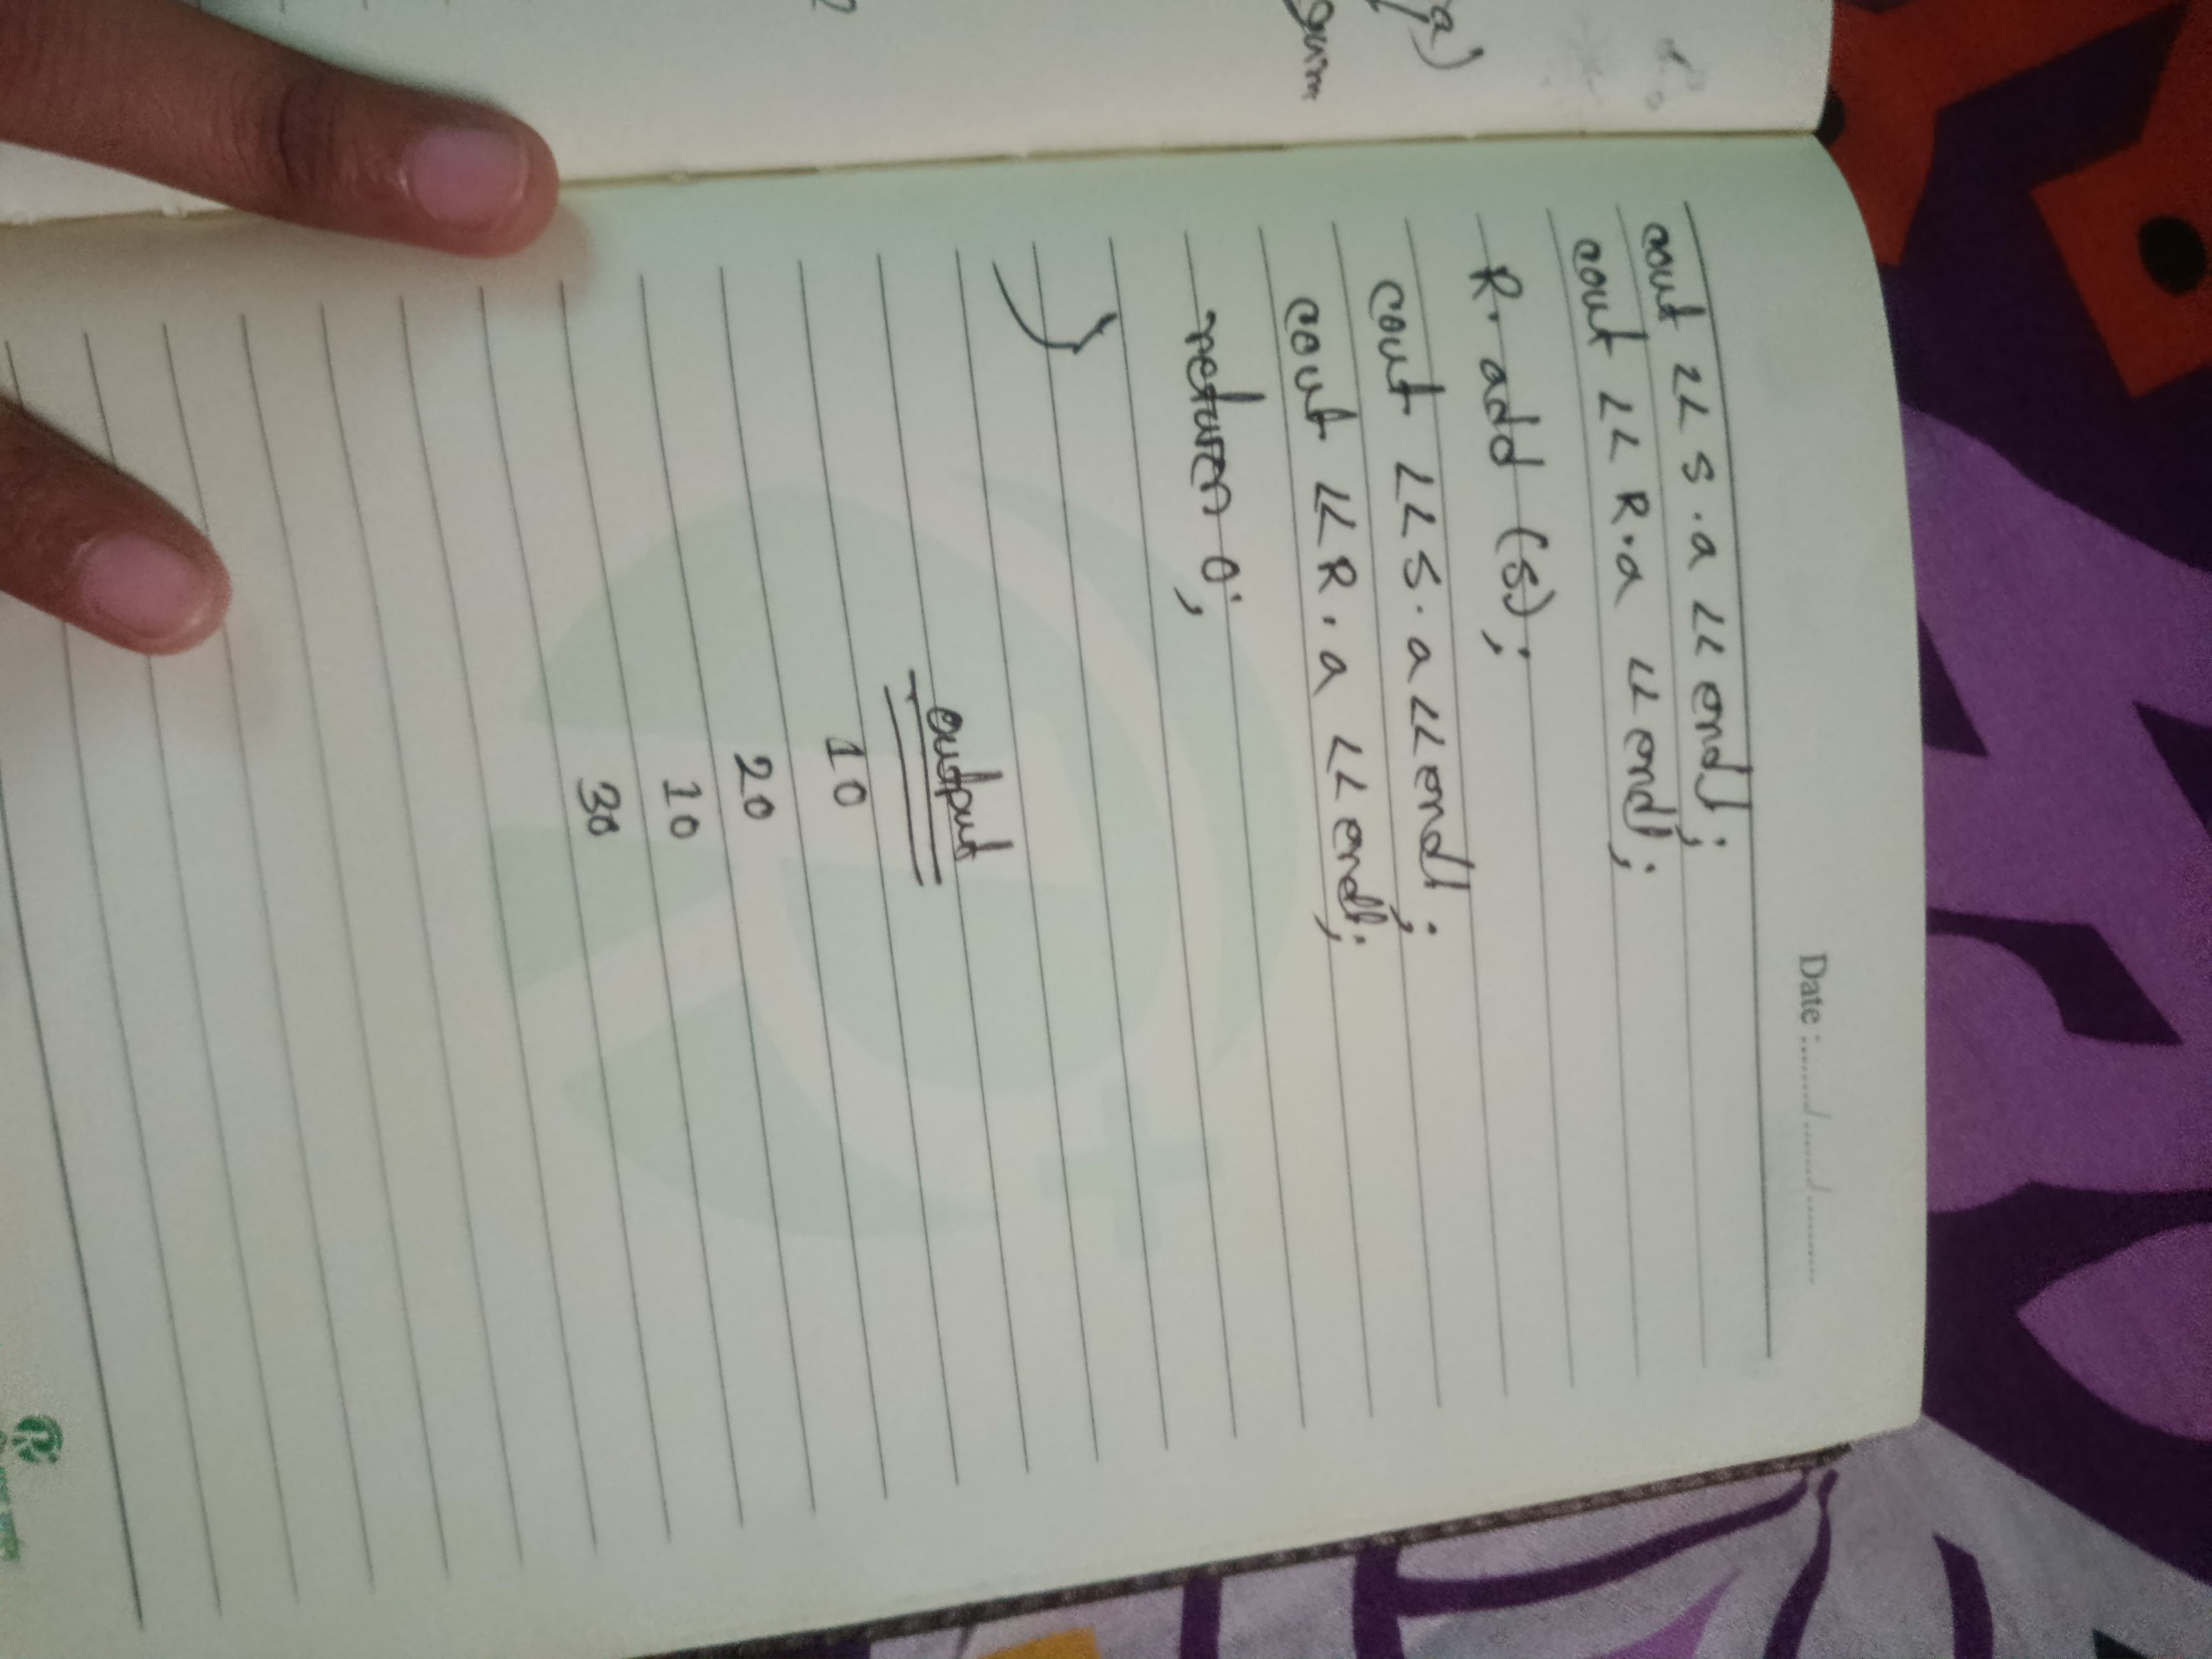 Date :......../......../..........
cout << s.a << endl;
cout << R.a << endl;
R. add (s);
cout << s.a << endl;
cout << R.a << endl;
return 0;
}
output
10
20
10
30